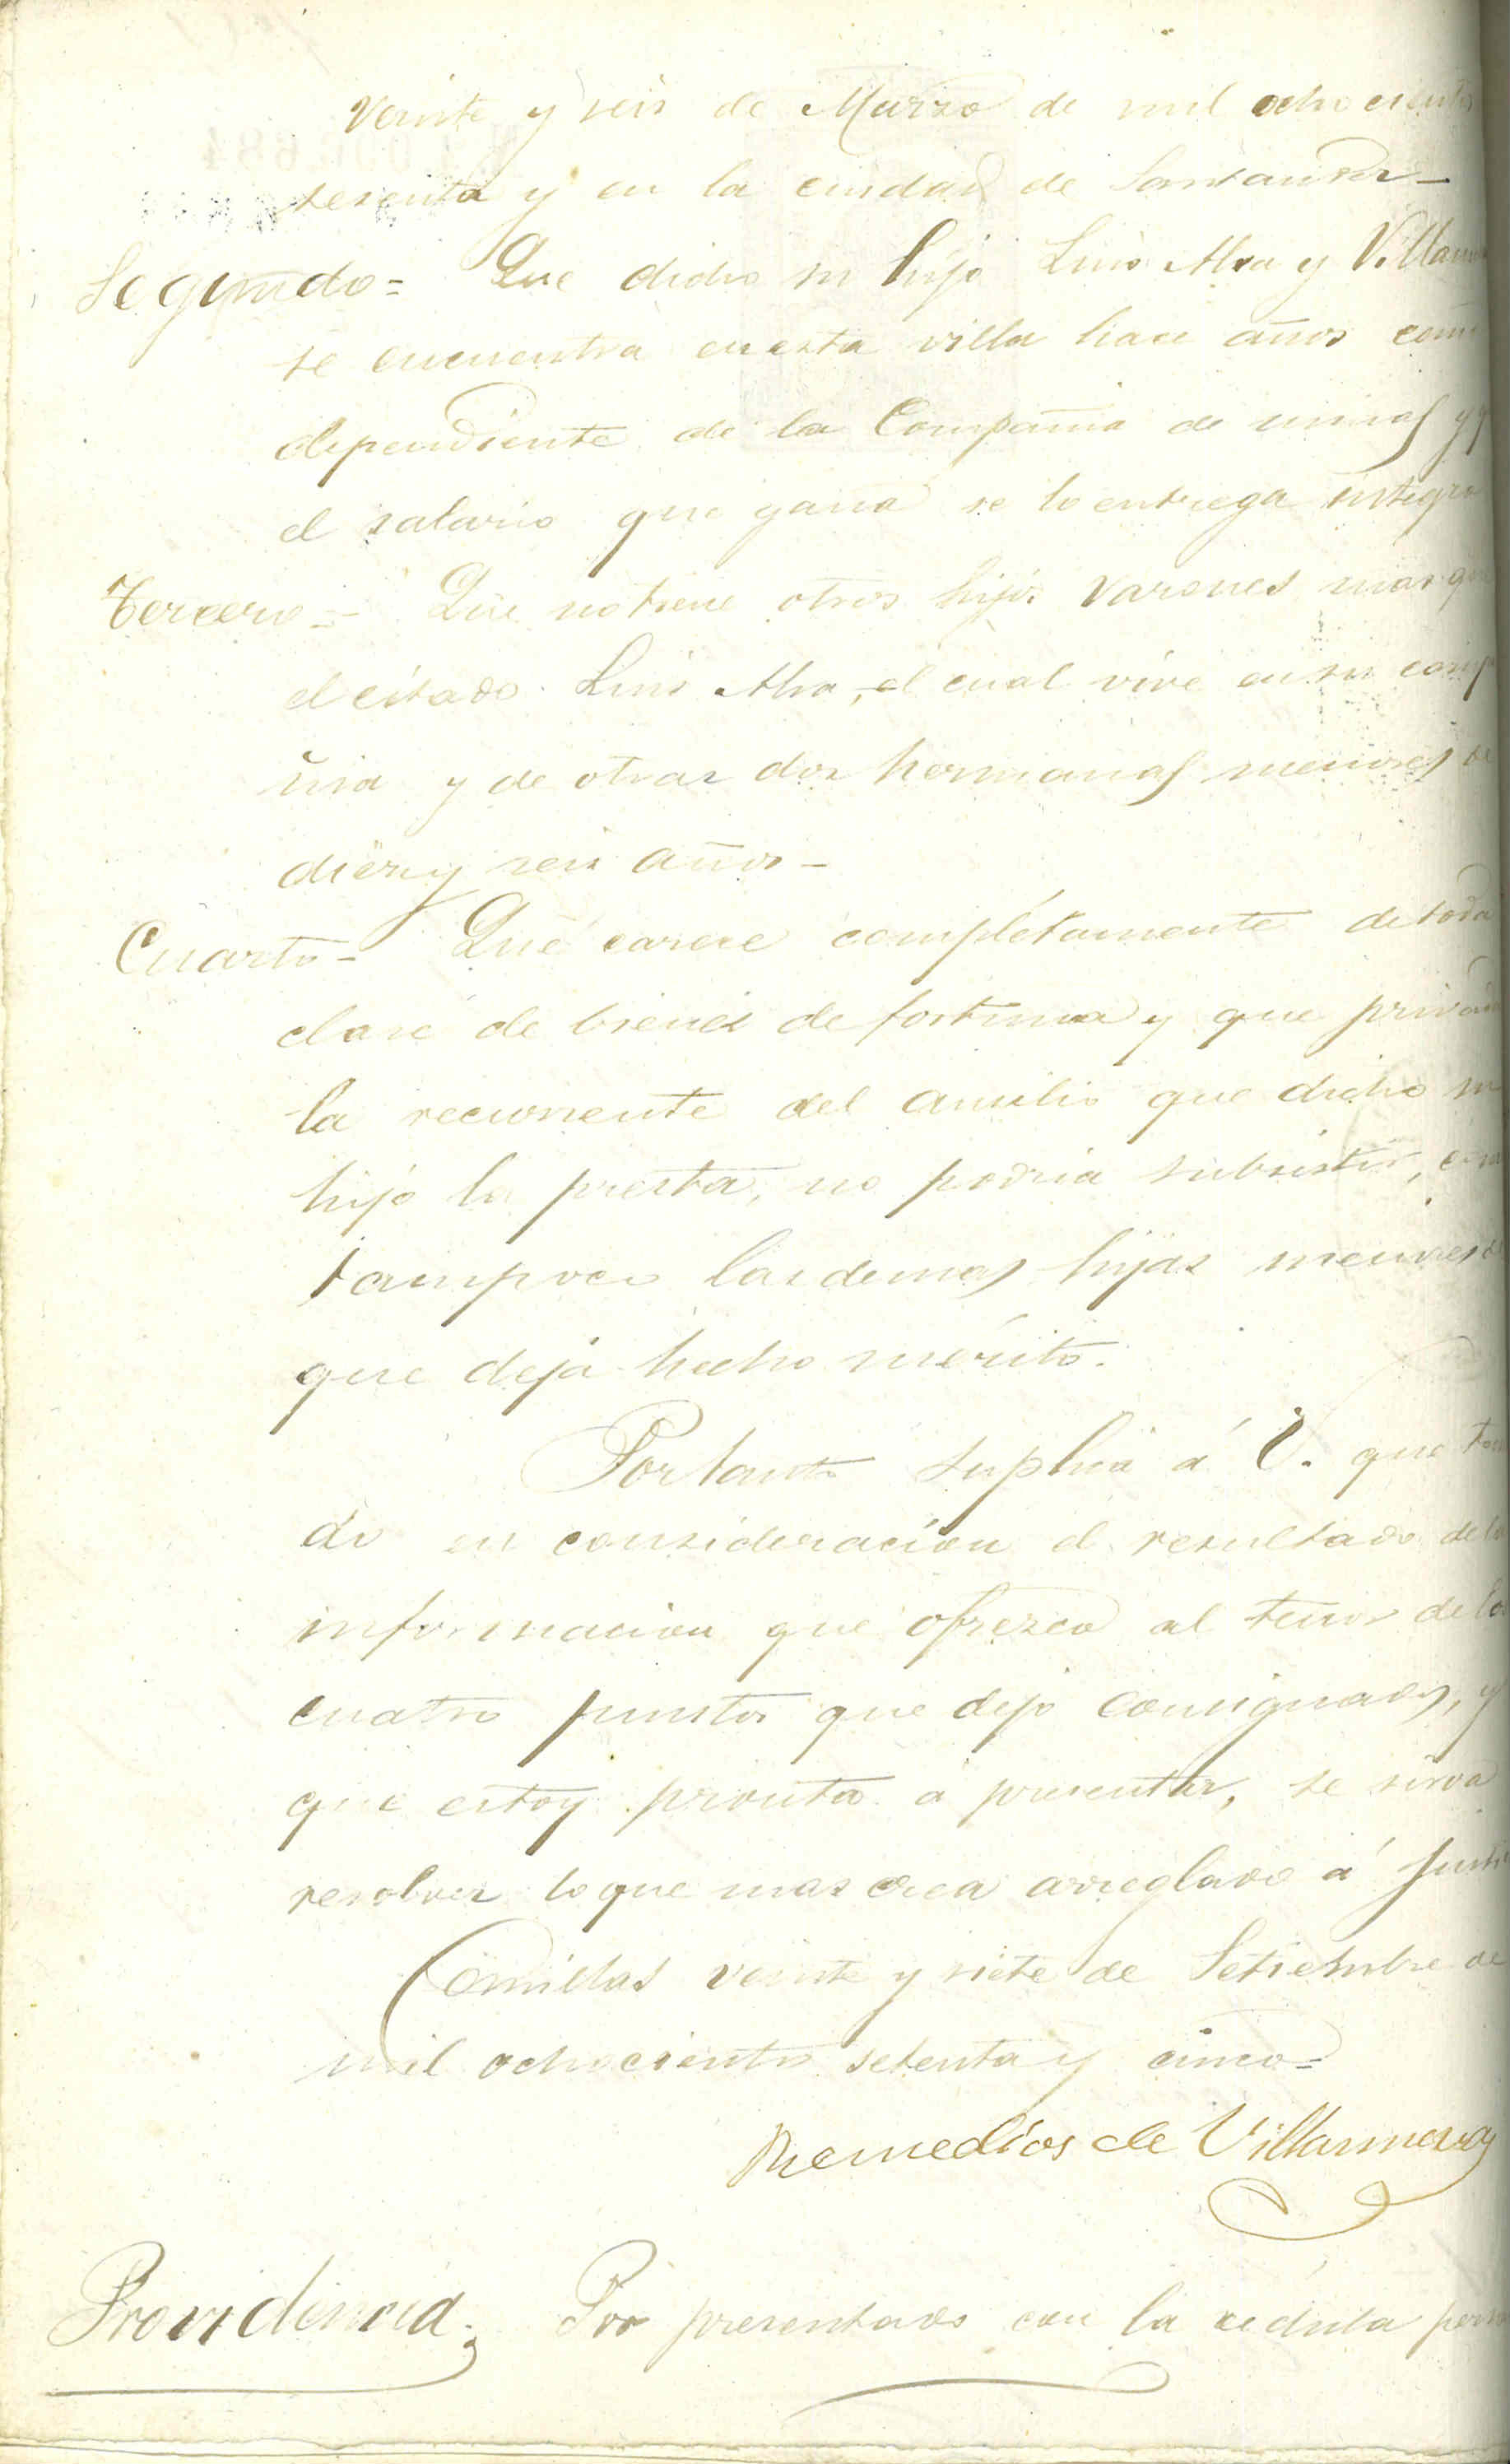 Veinte y seis de Marzo de mil ochocientos
sesenta y en la ciudad de Santander_
Segundo= Que dicho su hijo Luis Alva y Villanu
se encuentra en esta villa hace años com
dependiente de la Compañia de minas y q
el salario que gana se lo entrega integro
Tercero=- Que no tiene otros hijos varones mas que
el citado Luis Alva, el cual vive en su comp
ñia y de otras dos hermanas menores de
diez y seis años_
Cuarto- Que carece completamente de toda
clase de bienes de fortuna y que privada
la recurrente del ausilio que dicho su
hijo la presta, no podria subsistir, como
tampoco las demas hijas menores de
que deja hecho mérito.
Por tanto suplica á V. que tom
do en consideracion el resultado de la
informacion que ofrezco al tenor de los
cuatro puntos que dejo consignados, y
que estoy pronta a presentar, se sirva
resolver lo que mas crea arreglado á Justi
Comillas veinte y siete de Setiembre de
mil ochocientos setenta y cinco=
Remedios de Villanueva
Providencia. Por presentado con la cedula perso